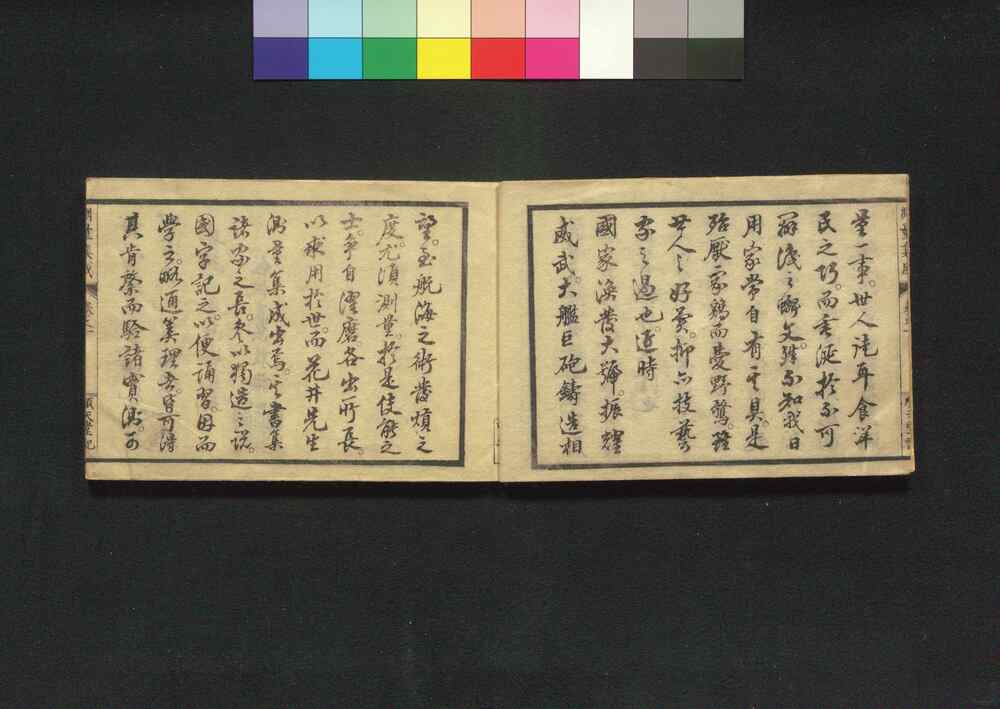 量一事。世人詫耳食洋
民之巧。而垂涎於不可
解淺之蠏文。殊不知我日
用家常自有其具。是
殆厭家鷄而愛野鶩。雖
世人之好異。抑亦技藝
家之過也。近時
國家渙發大號。振耀
威武。大艦巨砲鑄造相
望。至航海之術發熕之
度。尤須測量。於是使能之
士。爭自濯磨。各出所長
以求用於世。而花井先生
測量集成出焉。其書集
諸家之長。參以獨造之說。
國字記之。以便誦習。因而
學之。略通算理者。皆可得
其肯綮而驗諸實測。可